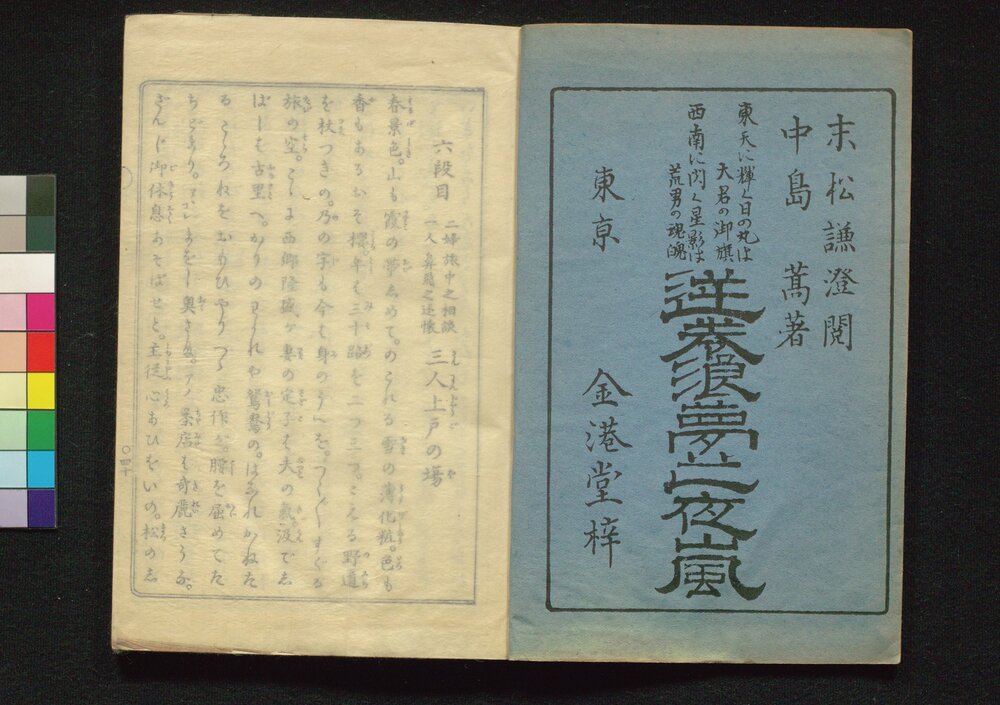 末松謙澄閲
中島蒿著
東天に輝く日の丸は
大君の御旗
西南に閃く星影は
荒男の魂魄
逆巻浪夢廼夜嵐
東京
金港堂梓
六段目
二婦旅中之相談
一人身親之述懐
三人上戸の場
春景色。山も霞の帯しめて。のこれる雪の薄化粧。色も
香もあるおそ桜。年も三十路を二つ三つ。こえる野道
を杖つきの。乃の字も今も身のうへを。つく〴〵すぐる
旅の空。こゝは西郷隆盛が妻の定子も夫の気汲でし
ばしも古里へ。かりのわかれや鴛鴦の。はなれかねた
るこゝろねをおもひやりつゝ忠作が。膝を屈めてた
ちどまり。モシ奥さま。アノ茶店も奇麗さうな。
ざんじ御休息あそばせと。主従心おひをいの。松のこ
〇四十